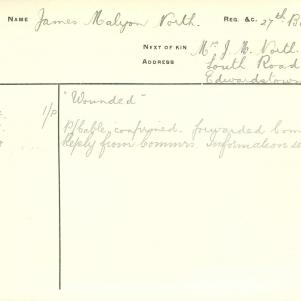 NAME James Malyon North. REG. &C. 27th B
NEXT OF KIN Mr J. M. North
ADDRESS South Road
Edwardstow
1/P "Wounded"
B/Cable, confirmed. forwarded Com
Reply from Commrs. Information se